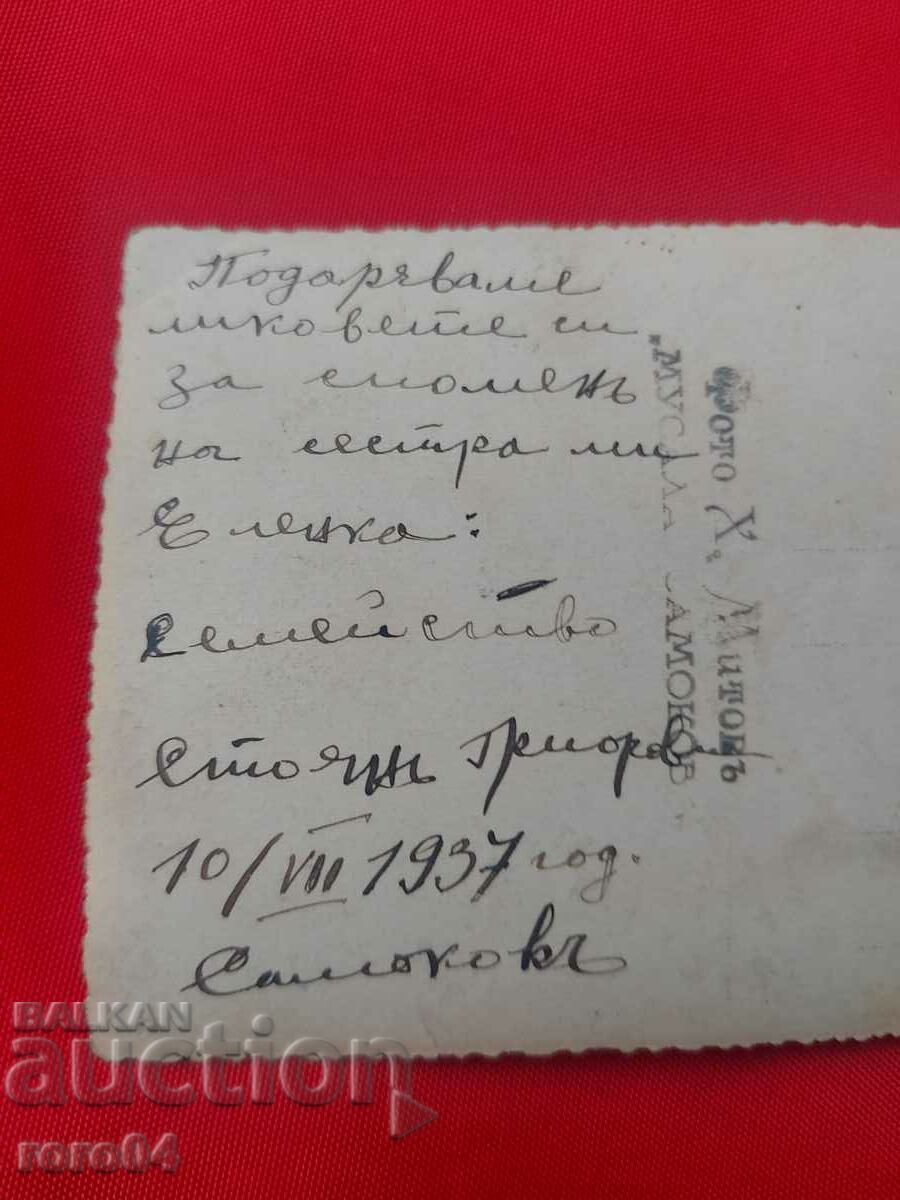 Подарѣваме
ликовете си
за споменъ
на сестра ми
Еленка:
Семейство
Стоянъ
10/VIII 1937 год.
Самоковъ
Фото Х. Митовъ
"МУСАЛА САМОКОВ
BALKAN
auction
roro04